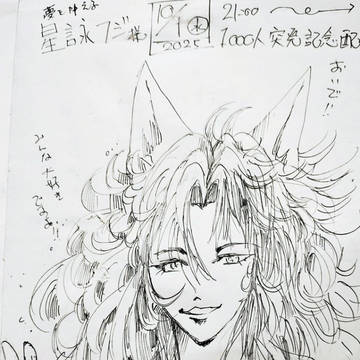 夢を叶える
星詠フジ様
10/1(水)
2025
21:00 〜
1000人突発記念配
おいで!!
みんな大好き
だよぉ!!